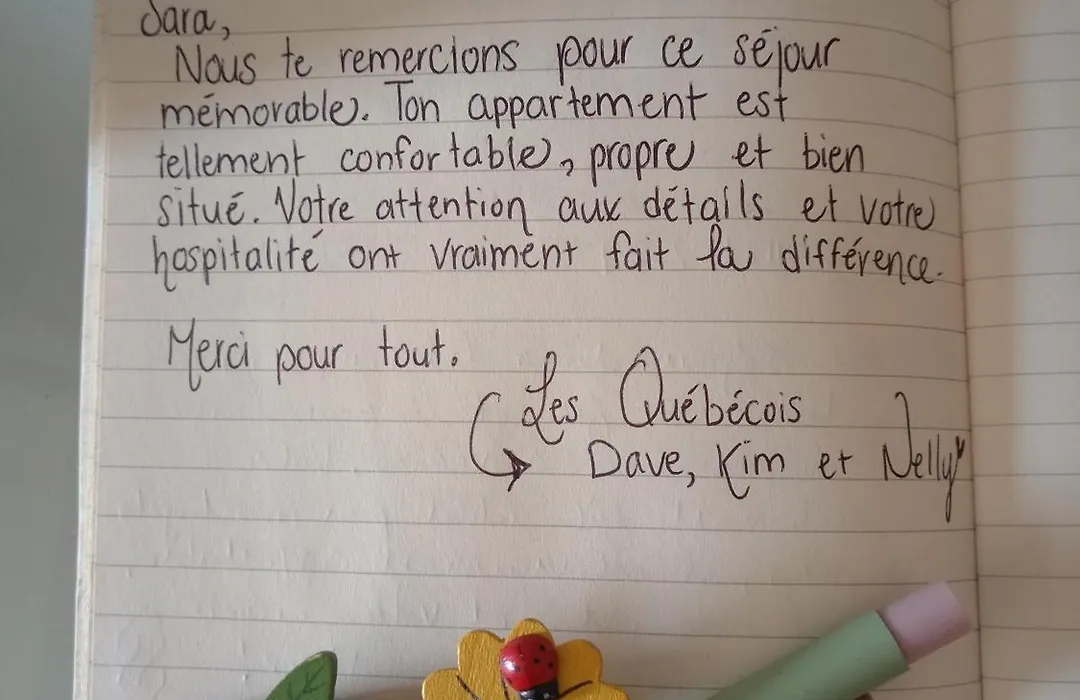 Sara,
Nous te remercions pour ce séjour
mémorable. Ton appartement est
tellement confortable, propre et bien
situé. Votre attention aux détails et votre
hospitalité ont vraiment fait la différence.
Merci pour tout.
Les Québécois
Dave, Kim et Nelly